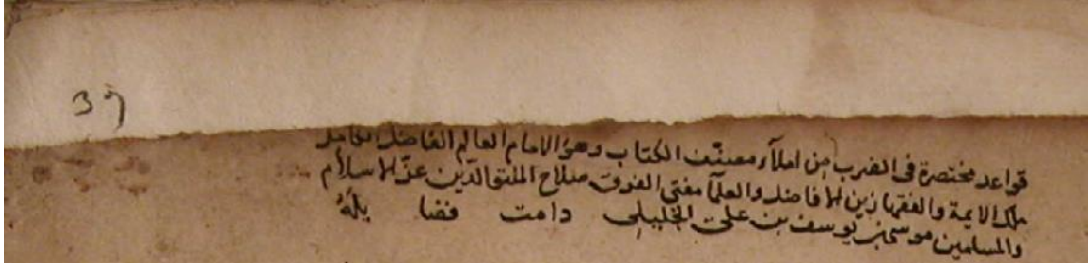 39
قواعد مختصرة في الضرب من املآء مصنف الكتاب وهو الامام العالم الفاضل الكامل
ملك الايمة والفقها زين الافاضل والعلمآ مفتي الفرق صلاح الملة والدين عز الاسلام
والمسلمين موسى بن يوسف بن علي الخليلي دامت فضايله